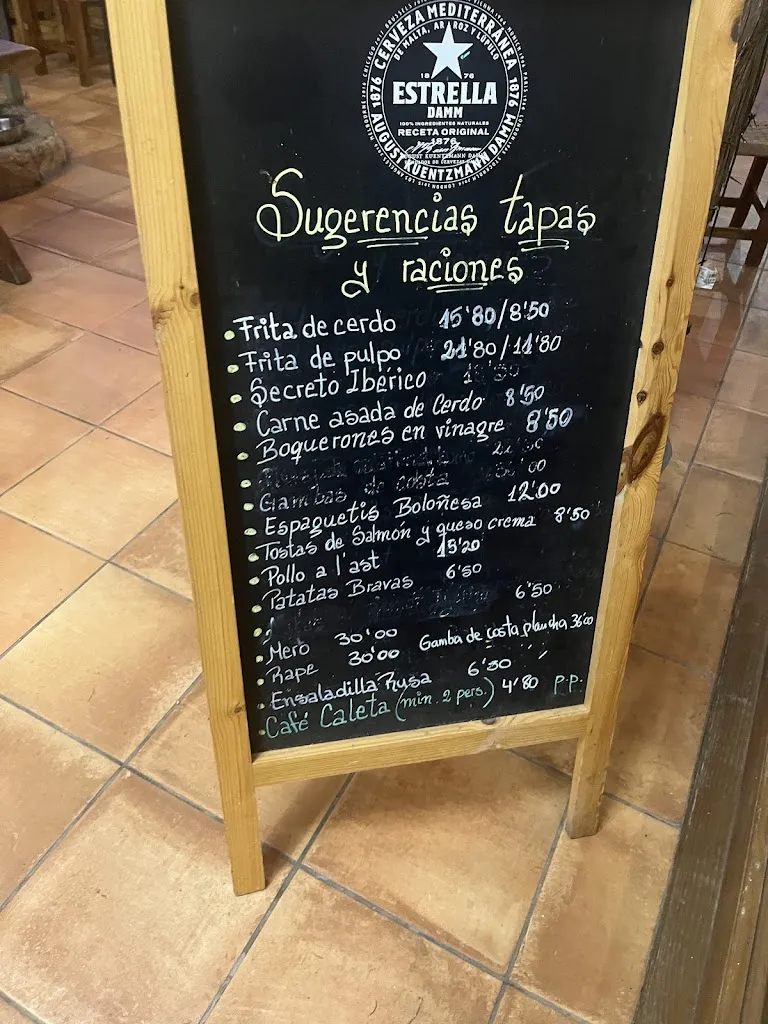 CERVEZA MEDITERRÁNEA
DE MALTA, ARROZ Y LÚPULO
1876
1876
1876
ESTRELLA
DAMM
100% INGREDIENTES NATURALES
RECETA ORIGINAL
1876
AUGUST KUENTZMANN DAMM
Sugerencias tapas
y raciones
Frita de cerdo 15'80/8'50
Frita de pulpo 21'80/11'80
Secreto Ibérico
Carne asada de Cerdo 8'50
Boquerones en vinagre 8'50
Gambas de costa
Espaguetis Boloñesa 12'00
Tostas de Salmón y queso crema 8'50
Pollo a l'ast 15'20
Patatas Bravas 6'50
6'50
Mero 30'00
Gamba de costa plancha 36'00
Rape 30'00
Ensaladilla Rusa 6'50
Café Caleta (min. 2 pers.) 4'80 p.p.